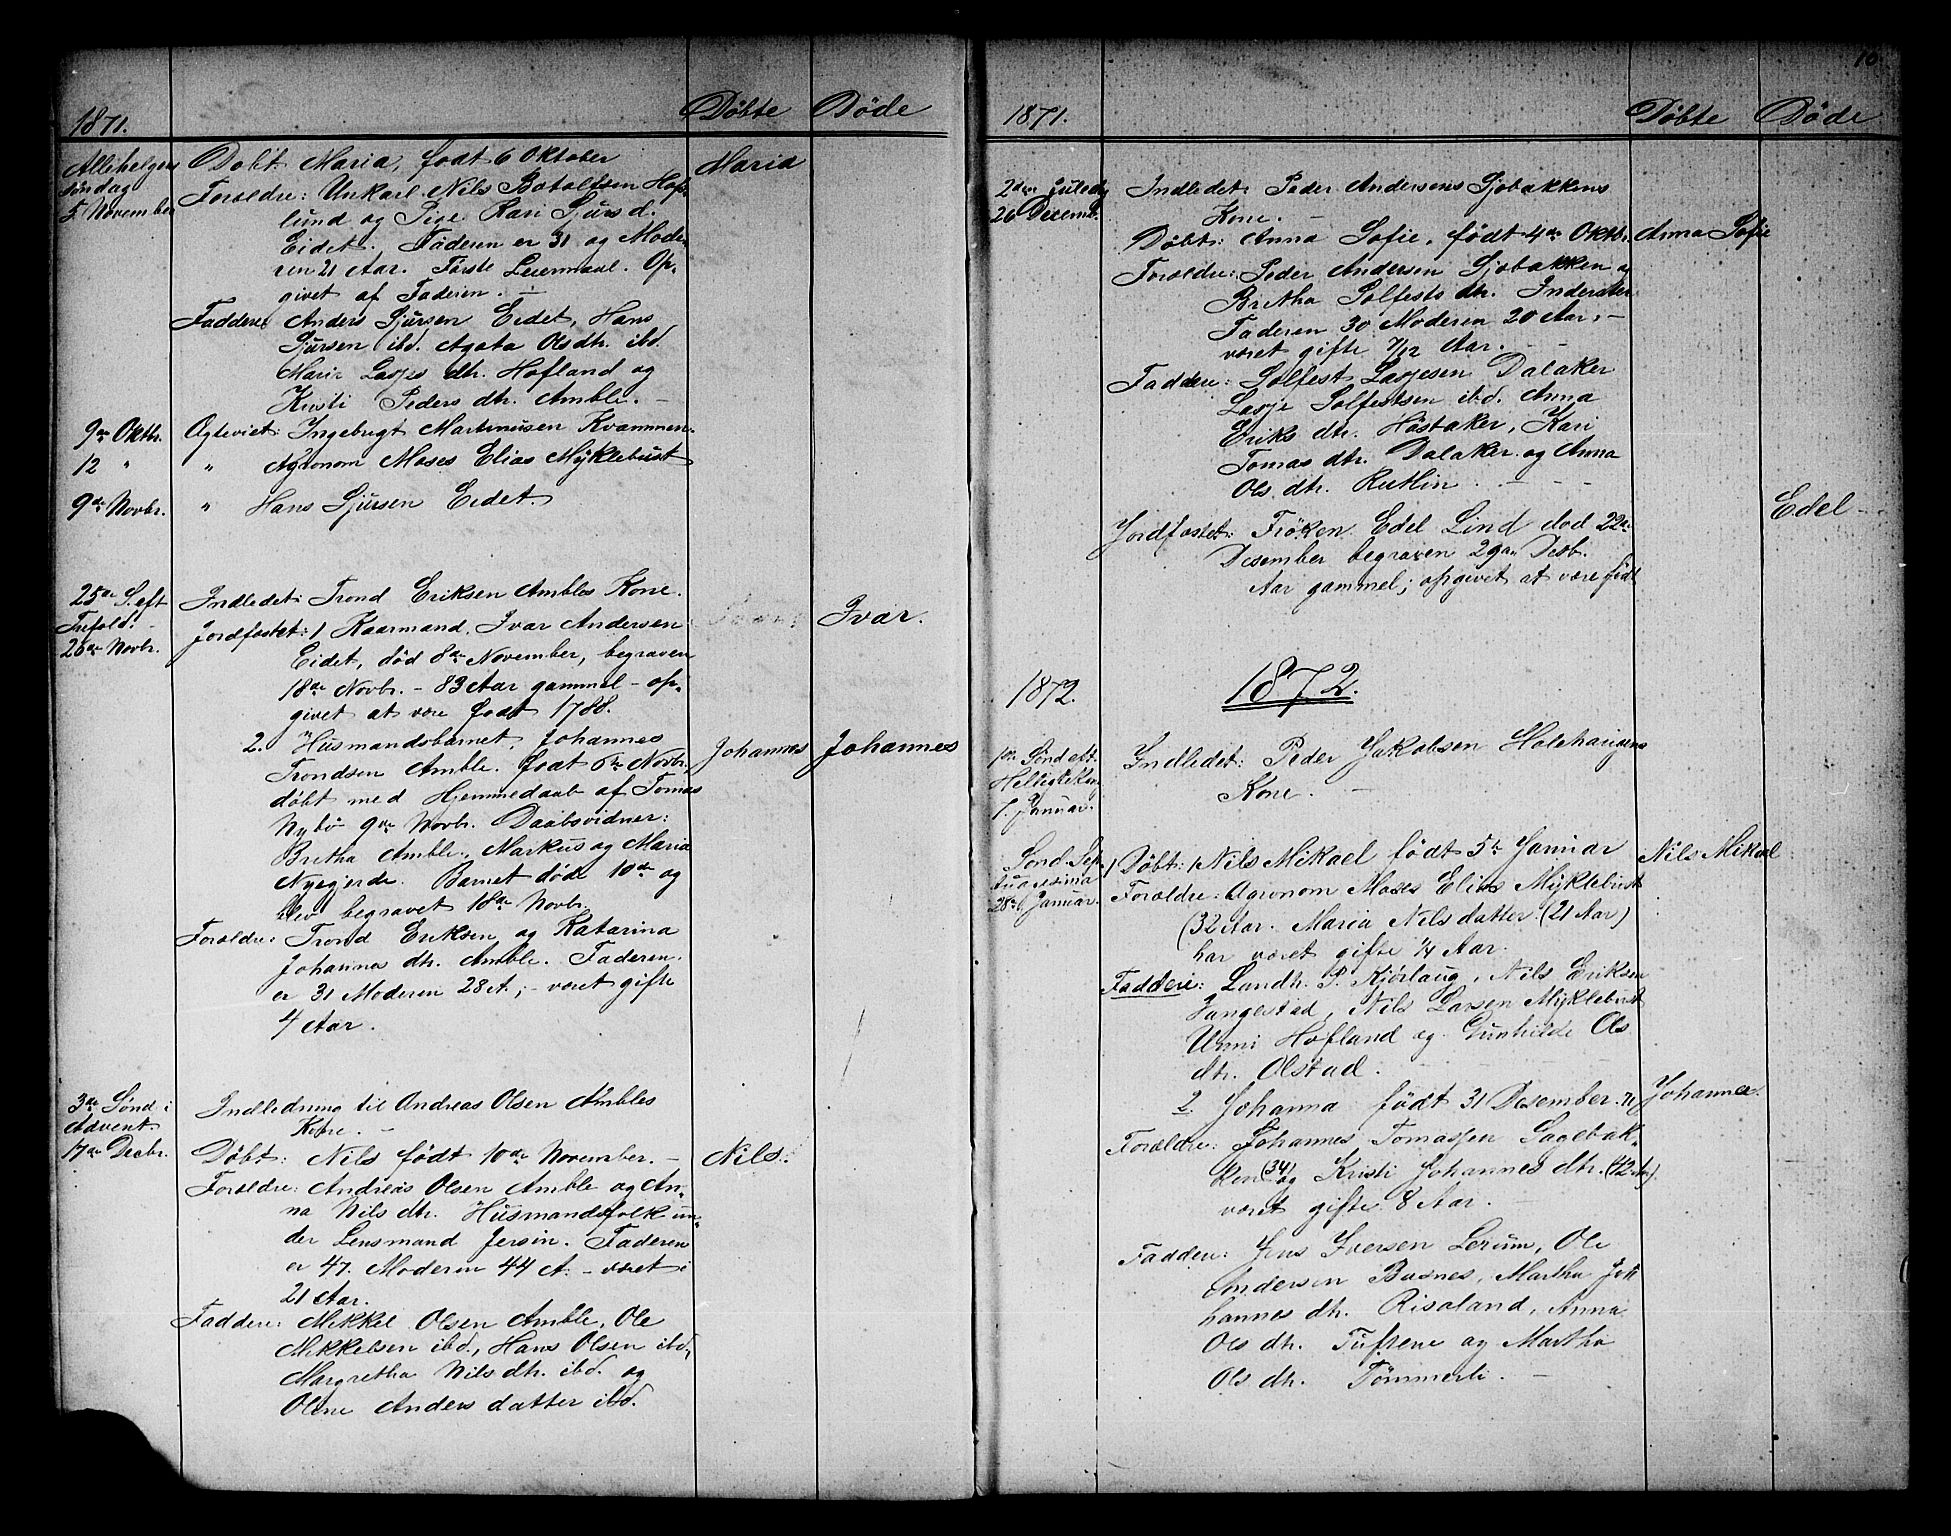 1871.
Döbte
Döde
Allehelgens
söndag
5 November
Dobt: Maria, födt 6 Oktober
Maria
Foreldre: Unkarl Nils Botolfsen Hof-
lund og Pige Kari Sjurs d.
Eidet. Faderen er 31 og Mode-
ren 21 Aar. Förste Leiermaal. Op-
givet af Faderen. —
Faddere: Anders Sjursen Eidet, Hans
Sjursen ibd. Agata Olsdtr. ibd.
Mari Lasses dtr. Hofland og
Kristi Peders dtr. Amble. —
9de Oktbr.
Ægteviet: Ingebrigt Martinusen Kvammen.
12 "
" Agronom Moses Elias Myklebust
9de Novbr.
" Hans Sjursen Eidet.
25de S. eft
Trefold.
26de Novbr.
Indledet: Trond Eriksen Ambles Kone.
Jordfæstet: 1 Kaarmand Ivar Andersen
Ivar.
Eidet, död 8de November, begraven
18de Novbr. – 83 Aar gammel – op-
givet at være födt 1788.
2. Husmandsbarnet, Johannes
Johannes
Johannes
Trondsen Amble. födt 6te Novbr.
döbt med Hjemmedaab af Tomas
Nybö 9de Novbr. Daabsvidner:
Bretha Amble, Markus og Maria
Nyegjerde. Barnet döde 10de og
blev begravet 18de Novbr.
Foreldre: Trond Eriksen og Katarina
Johannes dtr. Amble. Faderen.
er 31 Moderen 28 A.; – været gifte
4 Aar.
3de Sönd i
Advent.
17de Decbr.
Indledning til Andreas Olsen Ambles
Kone. –
Döbt: Nils födt 10de November. –
Nils.
Foreldre: Andreas Olsen Amble og An-
na Nils dtr. Husmandsfolk un-
der Lensmand Jersin. Faderen
er 47. Moderen 44 A. – været i
21 Aar.
Faddere: Mikkel Olsen Amble, Ole
Mikkelsen ibd., Hans Olsen ibd,
Margretha Nils dtr. ibd. og
Oline Anders datter ibd.
10.
1871.
Döbte
Döde
2den Juledg
26 Decemb.
Indledet: Peder Andersens Sjobakkens
Kone. –
Döbt: Anna Sofie, födt 4de Oktb.
Anna Sofie
Foreldre: Peder Andersen Sjobakken og
Bretha Solfests dtr.
Faderen 30 Moderen 20 Aar, –
været gifte 7/12 Aar.
Faddere: Solfest Lassesen Dalaker
Lasse Solfestsen ibd. Anna
Eriks dtr. Höstaker, Kari
Tomas dtr. Dalaker og Anna
Ols dtr. Rutlin. – – –
Jordfæstet: Fröken Edel Lind död 22de
Edel –
Desember begraven 29de Desb.
Aar gammel; opgivet at være födt
1872.
1872.
1ste Sönd eft.
Helligtrekon
7. Januar.
Indledet: Peder Jakobsen Holehaugens
Kone. –
Sönd. Sep-
tuagesima
28de Januar.
1 Döbt: Nils Mikael födt 5te Januar
Nils Mikael
Foreldre: Agronom Moses Elias Myklebust
(32 Aar. Maria Nils datter. (21 Aar)
har været gifte 1/4 Aar.
Faddere: Landh. P. Kjörlaug, Nils Eriksen
Jangestad, Nils Larsen Myklebust
Unni Hofland og Gunhilde Ols
dtr. Olstad.
2. Johanna födt 31 Desember 71
Johanna.
Foreldre: Johannes Tomassen Sagebak-
ken (34) og Kristi Johannes dtr. (42 Ar).
været gifte 8 Aar.
Faddere: Jens Iversen Lerum, Ole
Andersen Busnes, Martha Joh
hannes dtr. Risoland, Anna
Ols dtr. Tuftene og Martha
Ols dtr. Tömmerli. –